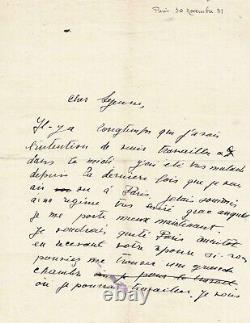 Paris 30 novembre 31
Cher
Il-y-a longtemps que j'avais
l'intention de venir travailler
dans le midi. j'ai été très malade
depuis la dernière fois que je vous
ai vu à Paris, j'étais soumis
a un régime très grace auquel
je me porte mieux maintenant.
Je voudrais quité Paris aussitot
en recevant votre réponse si vous
pouviez me trouver une grande
chambre
ou je pourrai travailler. je vous